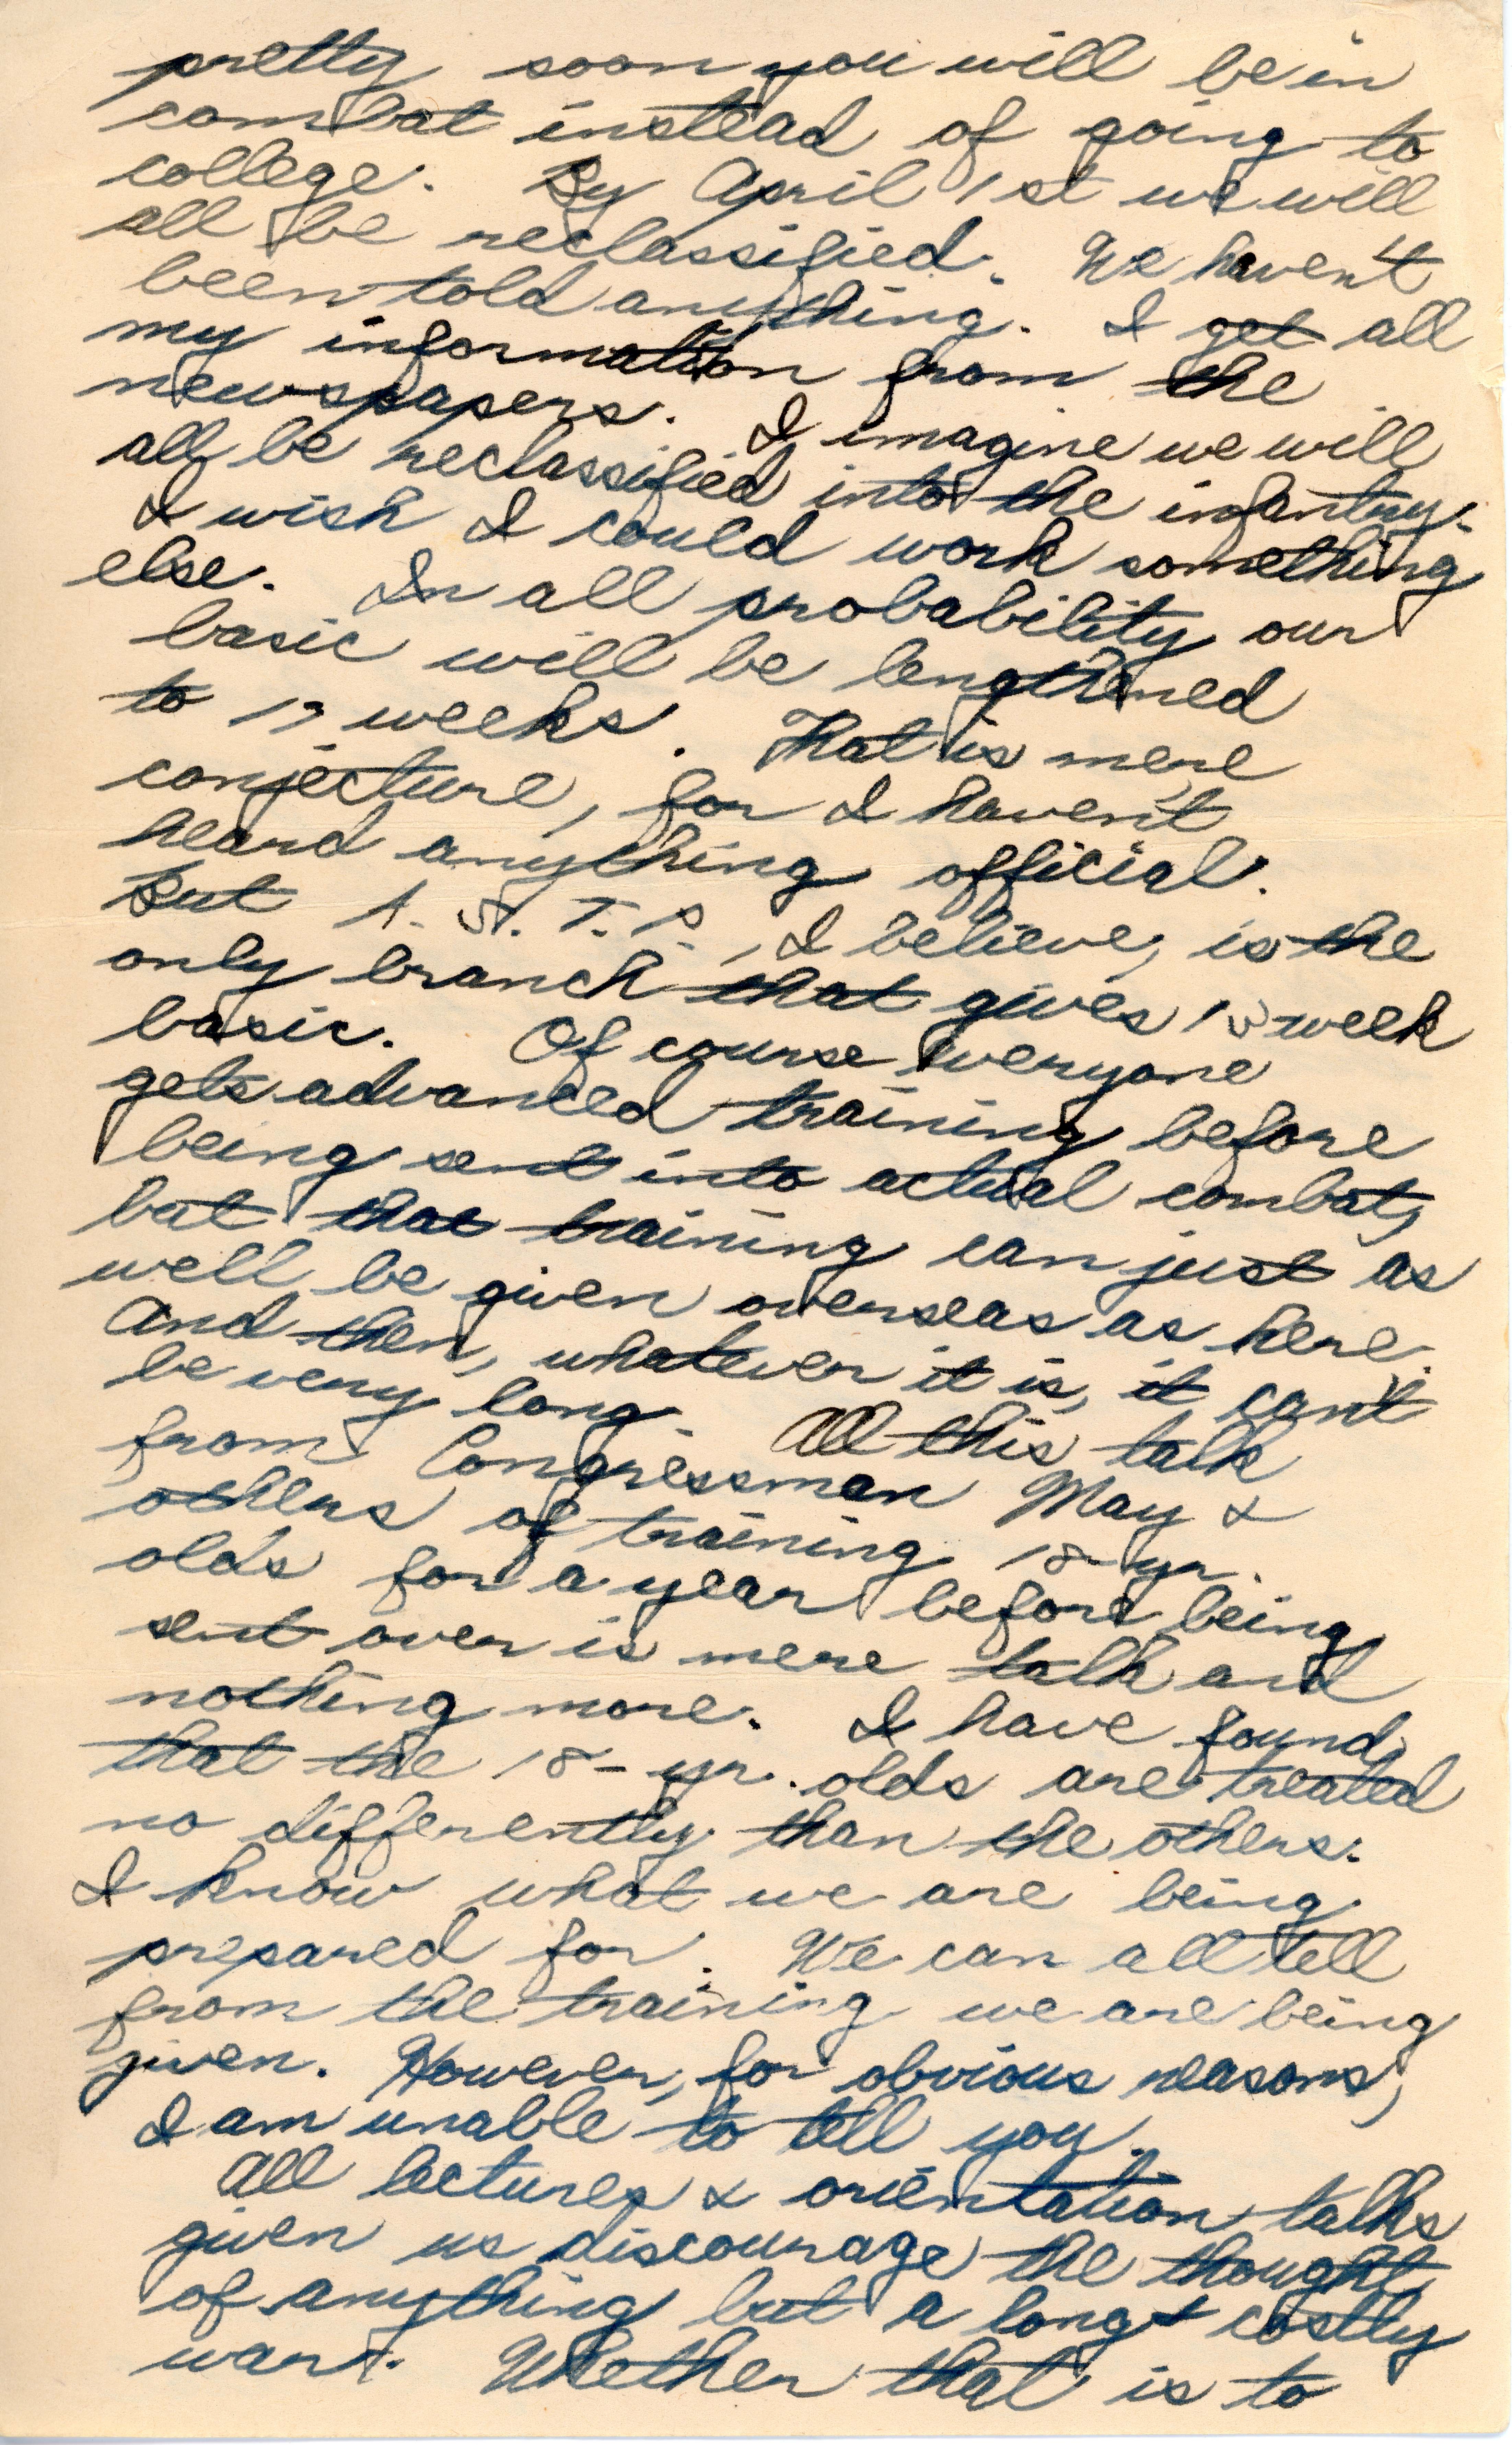 pretty soon you will be in
combat instead of going to
college. By April 1st we will
all be reclassified. We haven't
been told anything. I get all
my information from the
newspapers. I imagine we will
all be reclassified into the infantry.
I wish I could work something
else. In all probability our
basic will be lengthened
to 17 weeks. That is mere
conjecture, for I haven't
heard anything official.
But A. S. T. P., I believe, is the
only branch that gives 13 week
basic. Of course everyone
gets advanced training before
being sent into actual combat,
but that training can just as
well be given overseas as here.
And then, whatever it is, it can't
be very long. All this talk
from Congressman May &
others of training 18-yr.
olds for a year before being
sent over is mere talk and
nothing more. I have found
that the 18-yr. olds are treated
no differently than the others.
I know what we are being
prepared for. We can all tell
from the training we are being
given. However, for obvious reasons,
I am unable to tell you.
All lectures & orientation talks
given us discourage the thought
of anything but a long & costly
war. Whether that is to